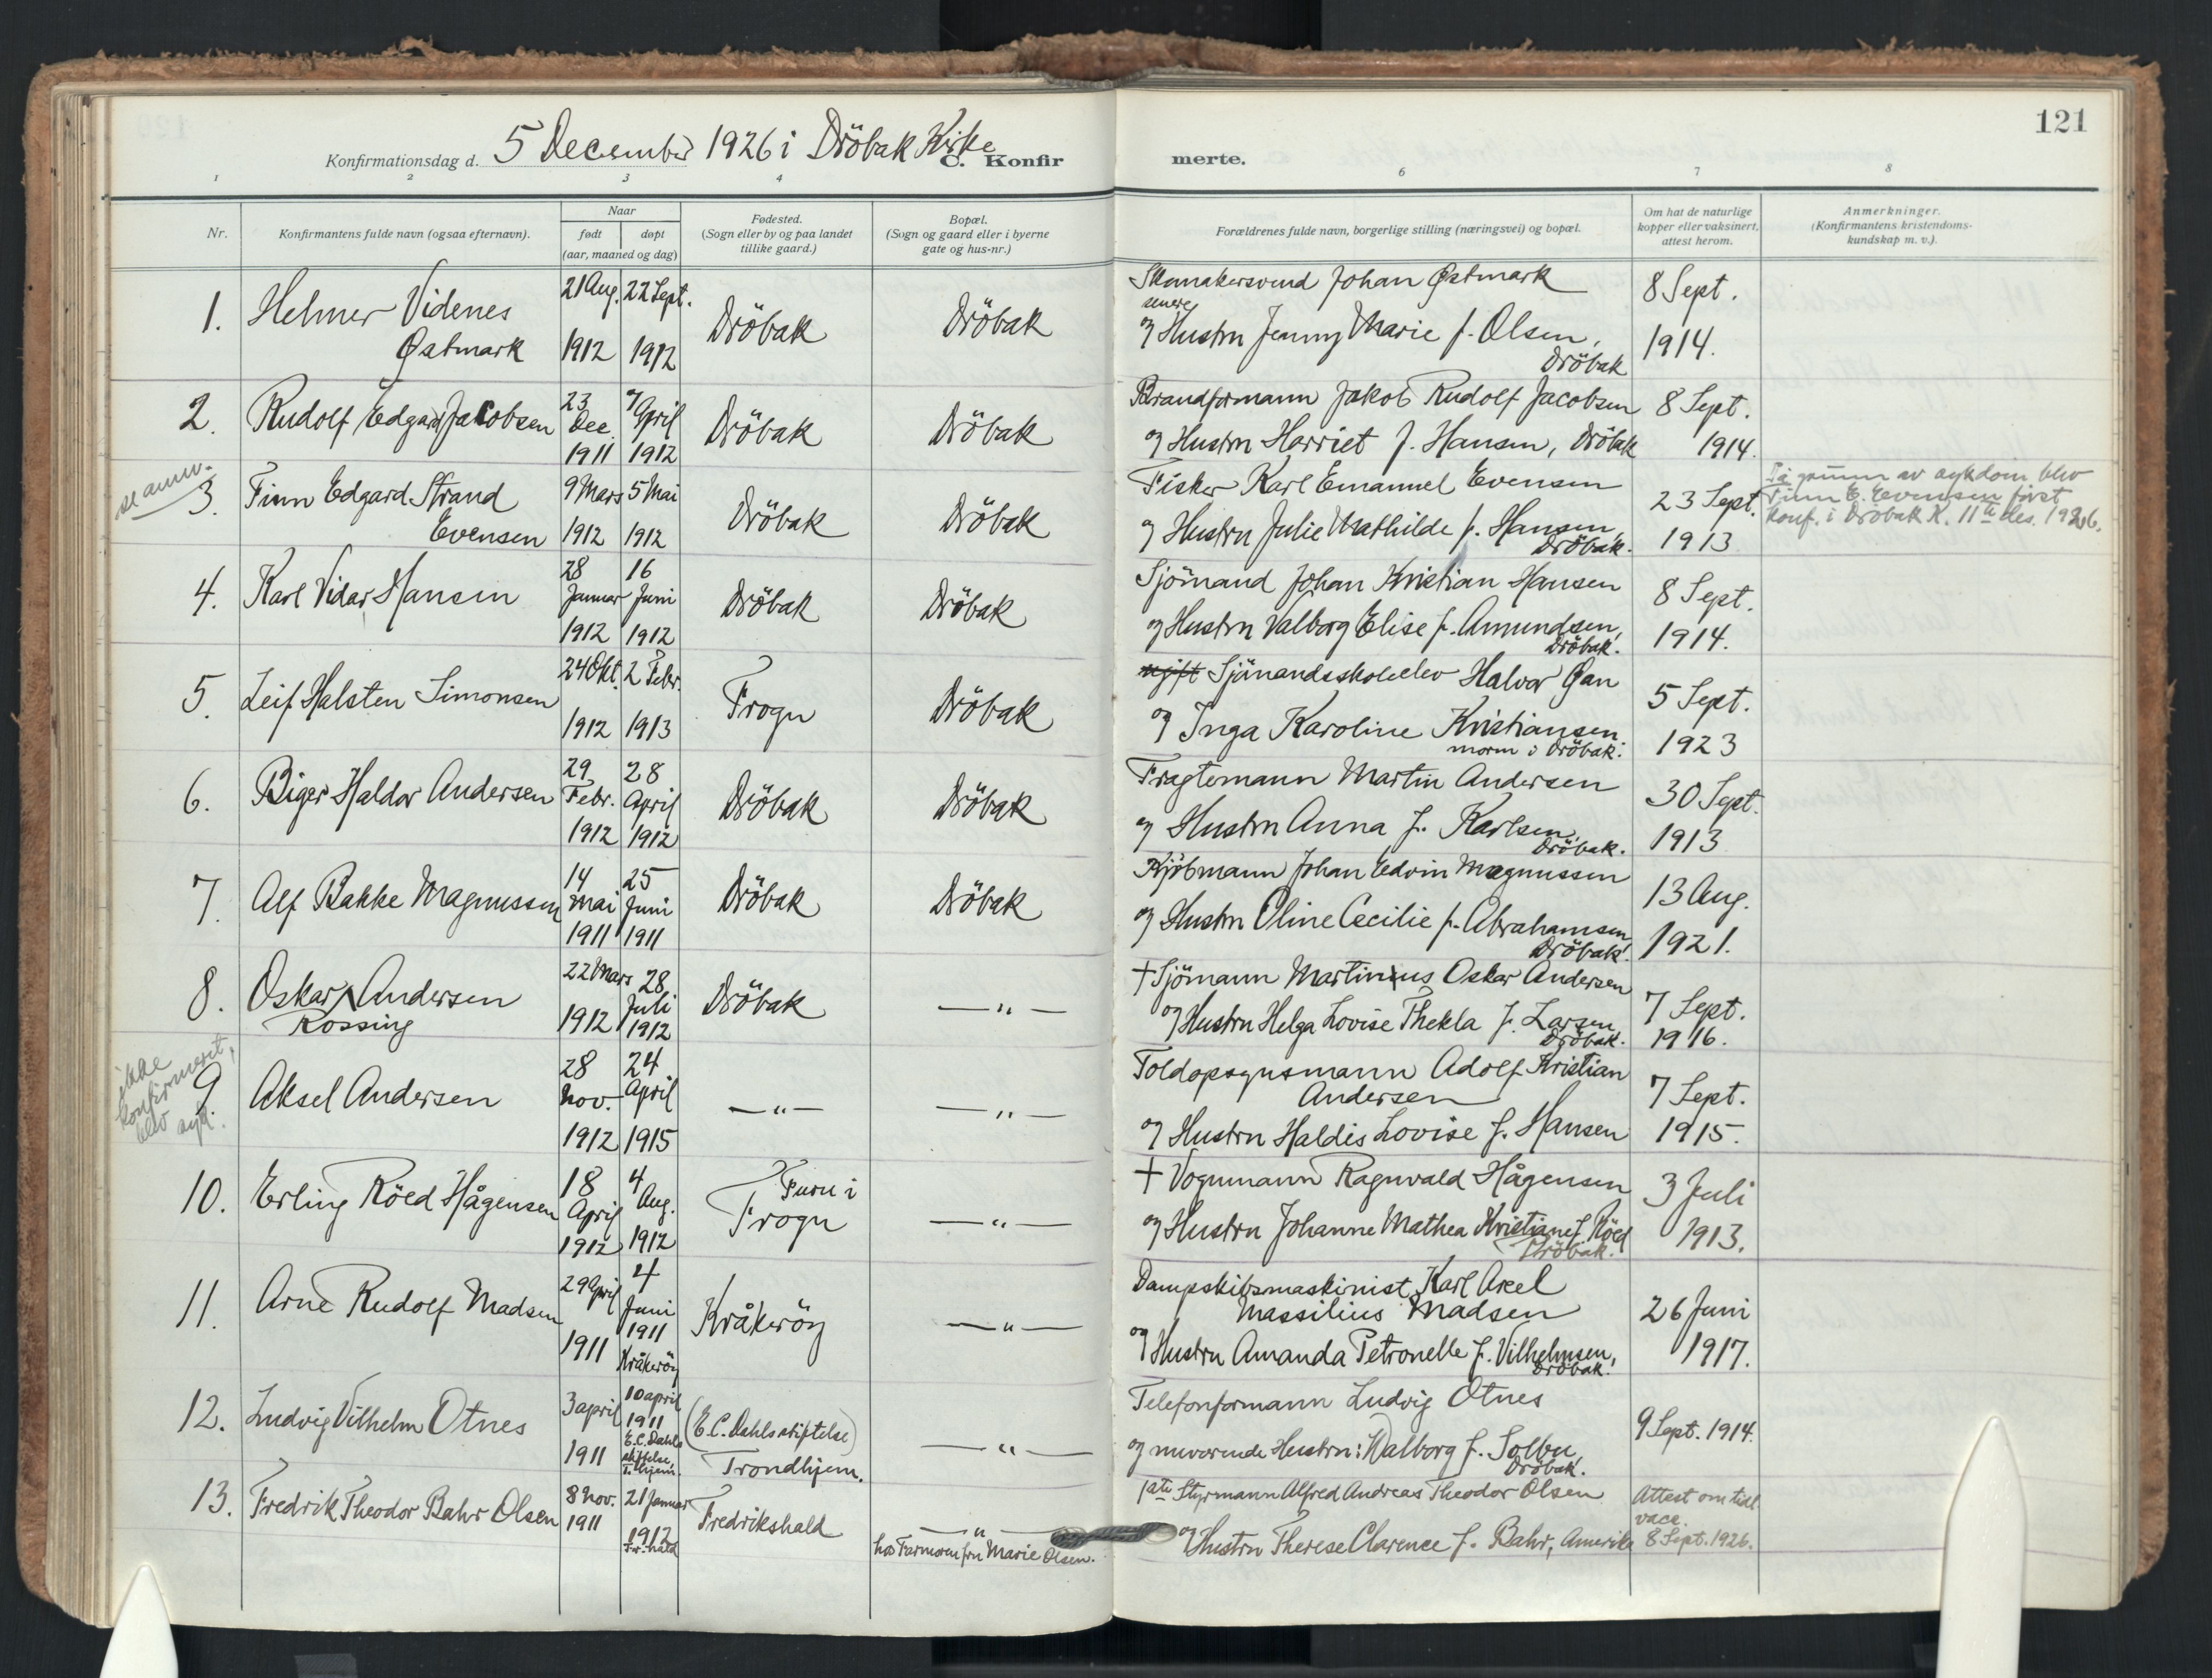 121
Konfirmationsdag d. 5 December 1926 i Dröbak Kirke
C. Konfir merte.
1 2 3 4 6 7 8
Nr.
Konfirmantens fulde navn (ogsaa efternavn).
Naar
født døpt
(aar, maaned og dag)
Fødested.
(Sogn eller by og paa landet
tillike gaard.)
Bopæl.
(Sogn og gaard eller i byerne
gate og hus-nr.)
Forældrenes fulde navn, borgerlige stilling (næringsvei) og bopæl.
Om hat de naturlige
kopper eller vaksinert,
attest herom.
Anmerkninger.
(Konfirmantens kristendoms-
kundskap m. v.).
1. Helmer Videnes
Østmark
21 Aug.
1912
22 Sept.
1912
Dröbak
Dröbak
Skomakersvend Johan Østmark
senere
og Hustru Jenny Marie f. Olsen,
Dröbak
8 Sept.
1914.
2. Rudolf Edgar Jacobsen
23
Dec.
1911
7
April
1912
Dröbak
Dröbak
Brandformann Jakob Rudolf Jacobsen
og Hustru Harriet f. Hansen, Dröbak
8 Sept.
1914.
se anm.
3. Finn Edgard Strand
Evensen
9 Mars
1912
5 Mai
1912
Dröbak
Dröbak
Fisker Karl Emanuel Evensen
og Hustru Julie Mathilde f. Hansen,
Dröbak.
23 Sept.
1913
På grunn av sykdom blev
Finn E. Evensen först
konf. i Dröbak K. 11te des. 1926.
4. Karl Vidar Hansen
28
Januar
1912
16
Juni
1912
Dröbak
Dröbak
Sjömand Johan Kristian Hansen
og Hustru Valborg Elise f. Amundsen,
Dröbak.
8 Sept.
1914.
5. Leif Halsten Simonsen
24 Okt.
1912
2 Febr.
1913
Frogn
Dröbak
ugift Sjömandsskoleelev Halvor Gan
og Inga Karoline Kristiansen
morm i Dröbak.
5 Sept.
1923
6. Biger Haldor Andersen
29
Febr.
1912
28
April
1912
Dröbak
Dröbak
Fragtemann Martin Andersen
og Hustru Anna f. Karlsen,
Dröbak.
30 Sept.
1913
7. Alf Bakke Magnussen
14
Mai
1911
25
Juni
1911
Dröbak
Dröbak
Kjöbmann Johan Edvin Magnussen
og Hustru Oline Cecilie f. Abrahamsen,
Dröbak.
13 Aug.
1921.
8. Oskar Andersen
Rossing
22 Mars
1912
28
Juli
1912
Dröbak
— " —
† Sjömann Martinius Oskar Andersen
og Hustru Helga Lovise Thekla f. Larsen,
Dröbak.
7 Sept.
1916.
ikke
konfirmeret,
blev syk.
9. Aksel Andersen
28
Nov.
1912
24
April
1915
— " —
— " —
Toldopsynsmann Adolf Kristian
Andersen
og Hustru Haldis Lovise f. Hansen
7 Sept.
1915.
10. Erling Röed Hågensen
18
April
1912
4
Aug.
1912
Furu i
Frogn
— " —
† Vognmann Ragnvald Hågensen
og Hustru Johanne Mathea Kristiane f. Röed
Dröbak.
3 Juli
1913.
11. Arne Rudolf Madsen
29 April
1911
4
Juni
1911
Kråkeröy
Kråkeröy
— " —
Dampskibsmaskinist Karl Axel
Massilius Madsen
og Hustru Amanda Petronelle f. Vilhelmsen,
Dröbak.
26 Juni
1917.
12. Ludvig Vilhelm Otnes
3 april
1911
10 april
1911
E. C. Dahls
stiftelse,
T.hjem.
(E. C. Dahls stiftelse)
Trondhjem.
— " —
Telefonformann Ludvig Otnes
og nuværende Hustru: Valborg f. Solbu,
Dröbak.
9 Sept. 1914.
13. Fredrik Theodor Bahr Olsen
8 Nov.
1911
21 Januar
1912
Fr.hald
Fredrikshald
— " —
hos Farmoren fru Marie Olsen.
1ste Styrmann Alfred Andreas Theodor Olsen
og Hustru Therese Clarence f. Bahr, Amerika
Attest om
vacc.
8 Sept. 1926.